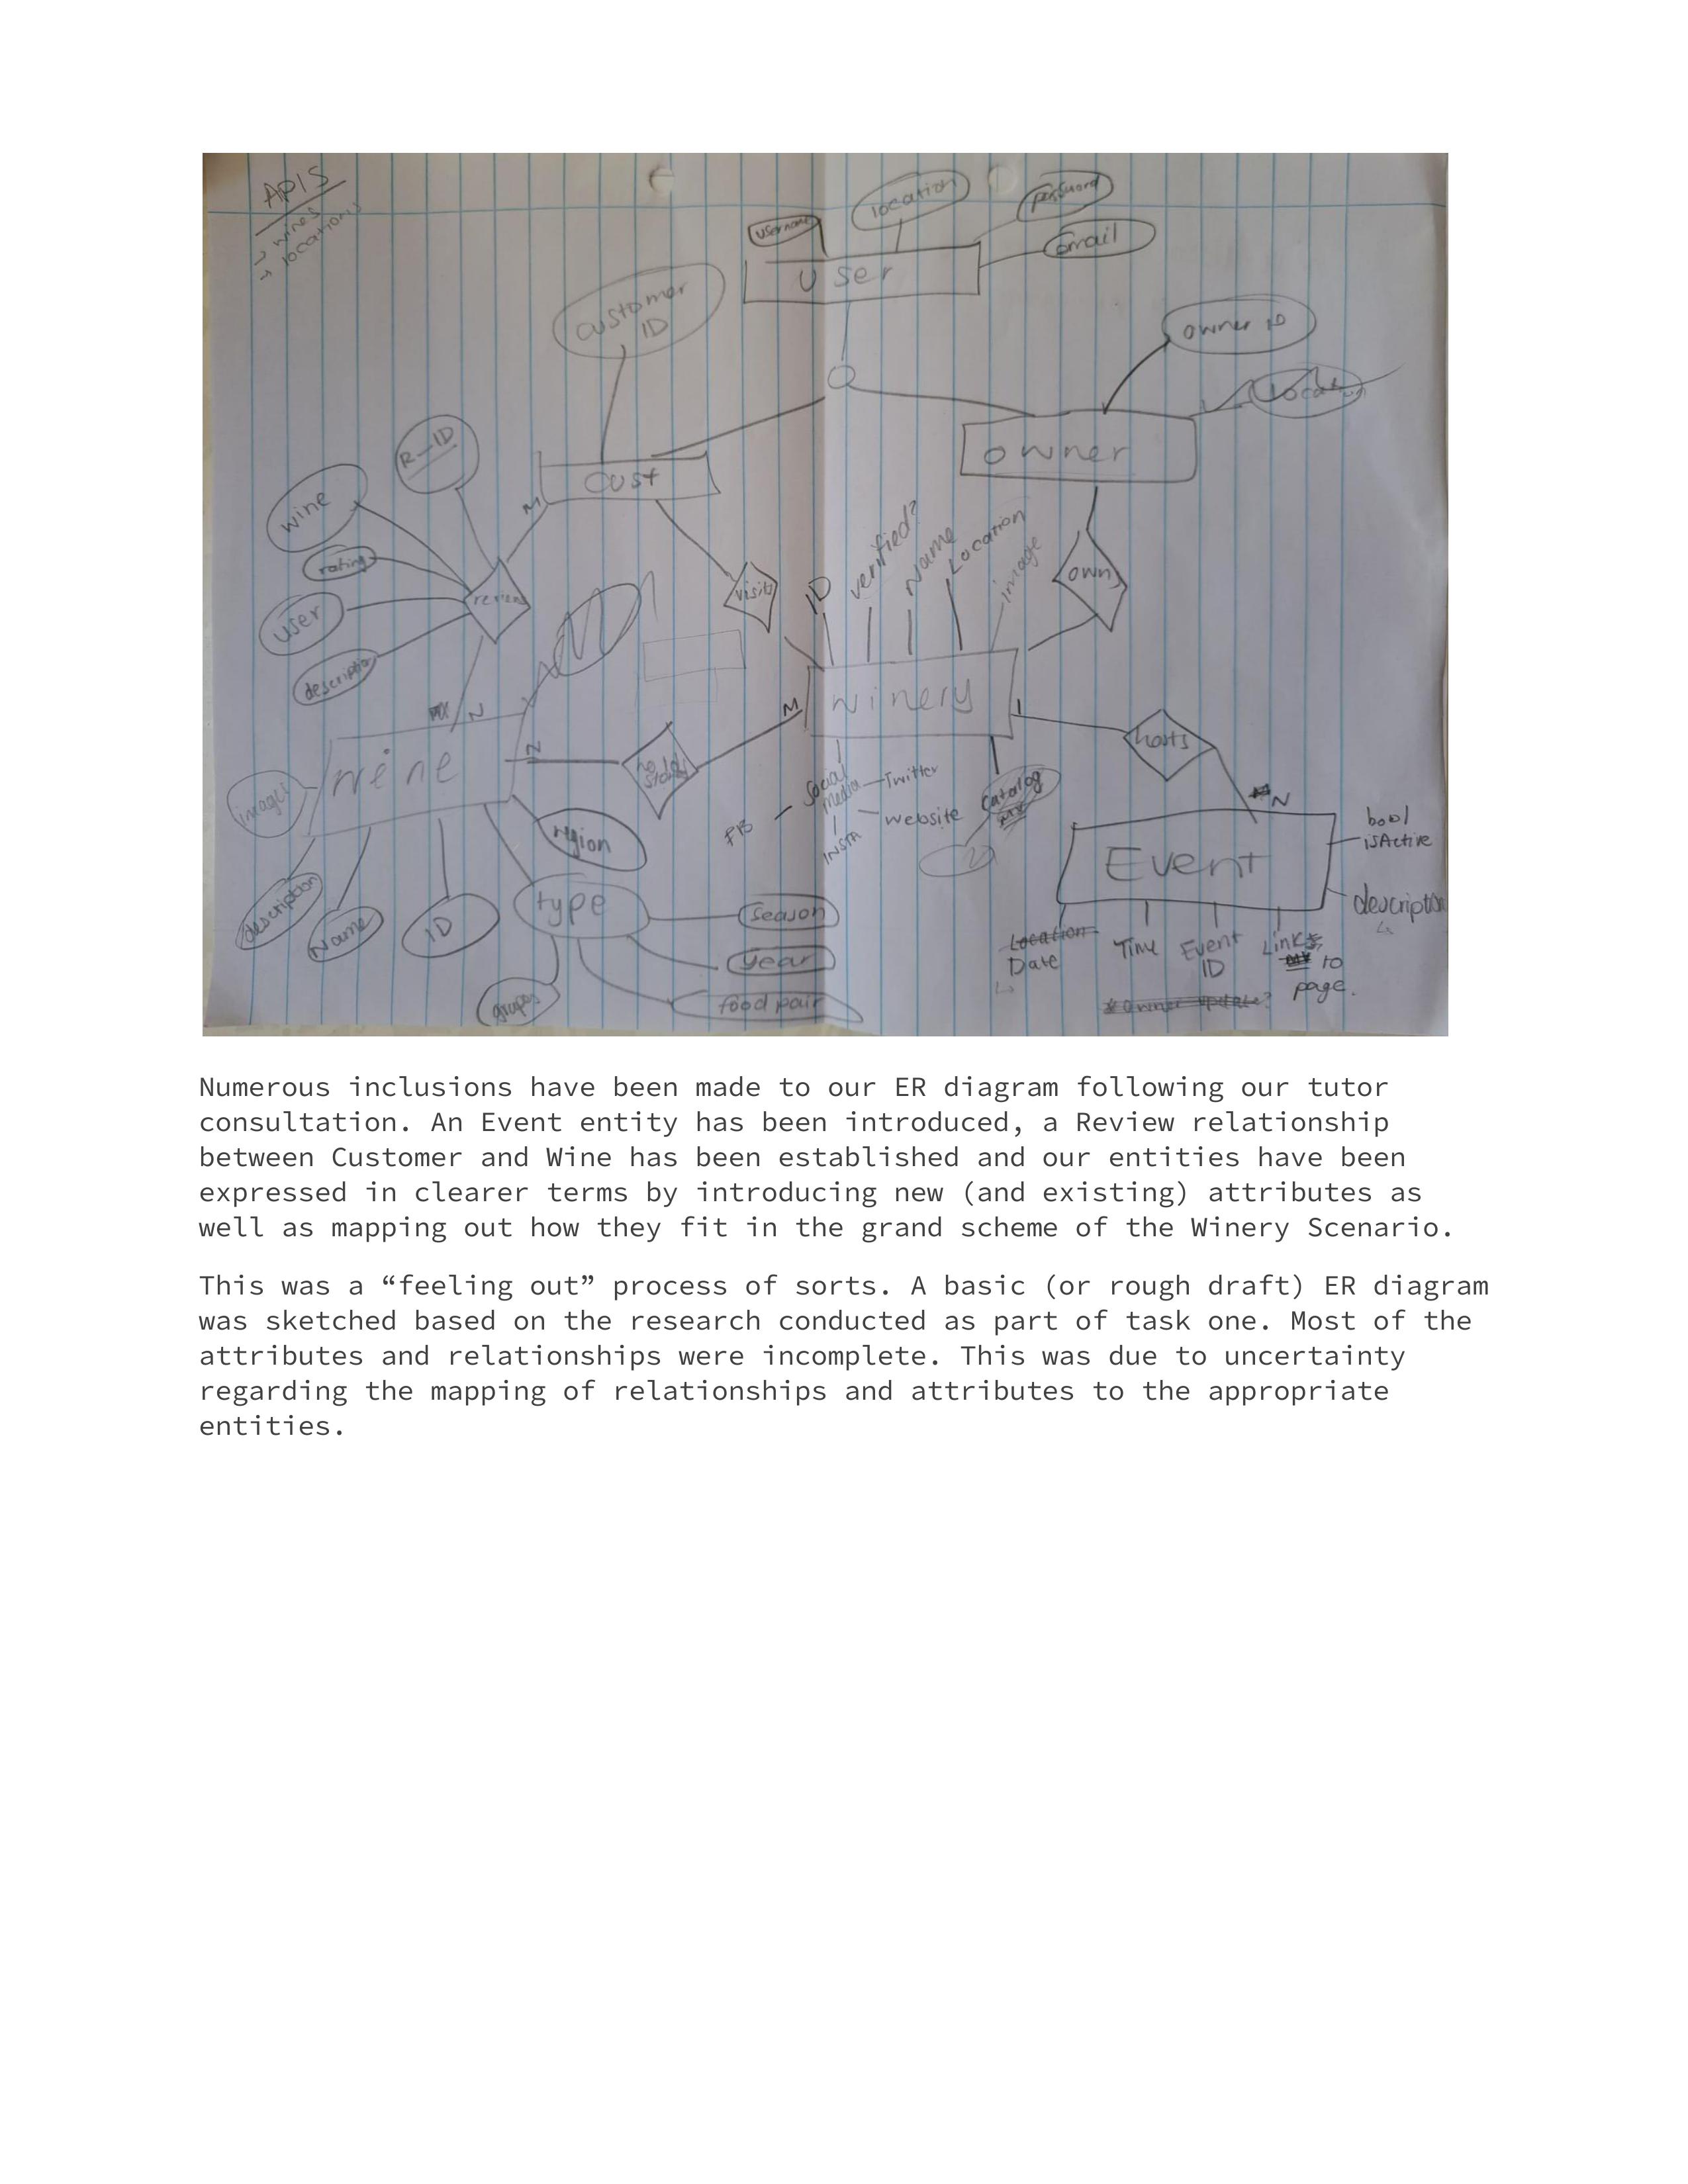 APIS
→ wines
→ locations
username
location
password
email
User
customer
ID
owner ID
Location
R-ID
Cust
owner
wine
M
rating
user
description
review
visits
own
ID
verified?
Name
Location
image
N
M
winery
1
hosts
N
wine
N
image
Social
media
Twitter
FB
website
INSTA
catalog
N
region
Event
bool
isActive
description
description
Name
ID
type
season
year
grapes
food pair
Location
Date
Time
Event
ID
Links
to
page.
*Owner update?
Numerous inclusions have been made to our ER diagram following our tutor
consultation. An Event entity has been introduced, a Review relationship
between Customer and Wine has been established and our entities have been
expressed in clearer terms by introducing new (and existing) attributes as
well as mapping out how they fit in the grand scheme of the Winery Scenario.
This was a “feeling out” process of sorts. A basic (or rough draft) ER diagram
was sketched based on the research conducted as part of task one. Most of the
attributes and relationships were incomplete. This was due to uncertainty
regarding the mapping of relationships and attributes to the appropriate
entities.